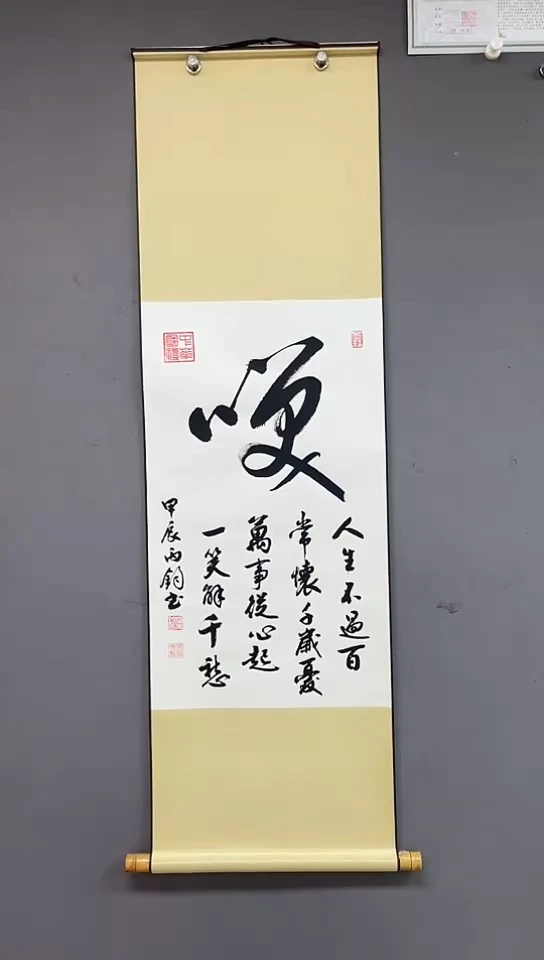 咲
人生不過百
常懷千歲憂
萬事從心起
一笑解千愁
甲辰雨鈞书